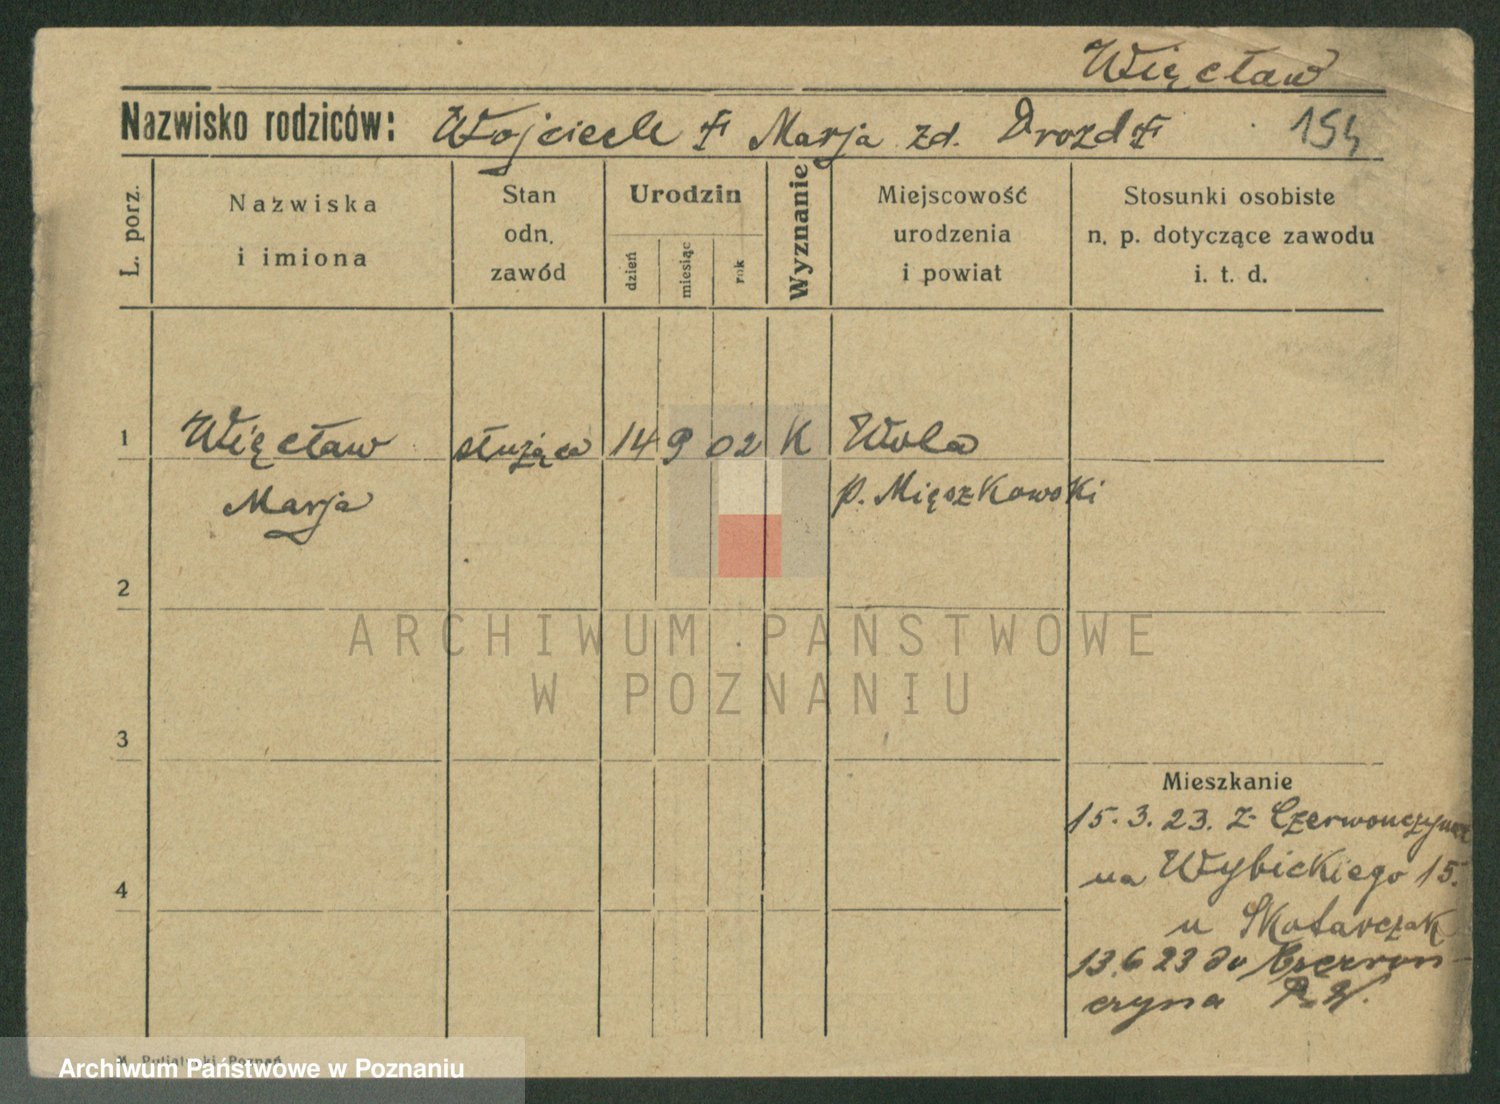 Więcław
Nazwisko rodziców: Wojciech Marja zd. Drozd 154
L. porz.
Nazwiska
i imiona
Stan
odn.
zawód
Urodzin
dzień
miesiąc
rok
Wyznanie
Miejscowość
urodzenia
i powiat
Stosunki osobiste
n. p. dotyczące zawodu
i. t. d.
1 Więcław służąca 14 9 02 K Wola
Marja p. Mięszkowski
2
ARCHIWUM PAŃSTWOWE
W POZNANIU
3
Mieszkanie
15. 3. 23. z
na Wybickiego 15.
4
u Skotarczak
13. 6 23 do Czerwon-
czyna P. W.
Poznań
Archiwum Państwowe w Poznaniu